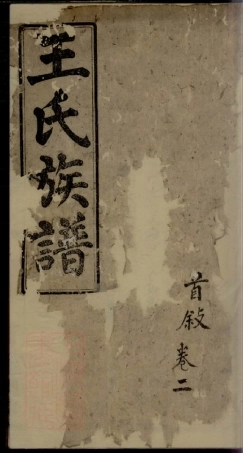 王氏族譜
首敘卷二